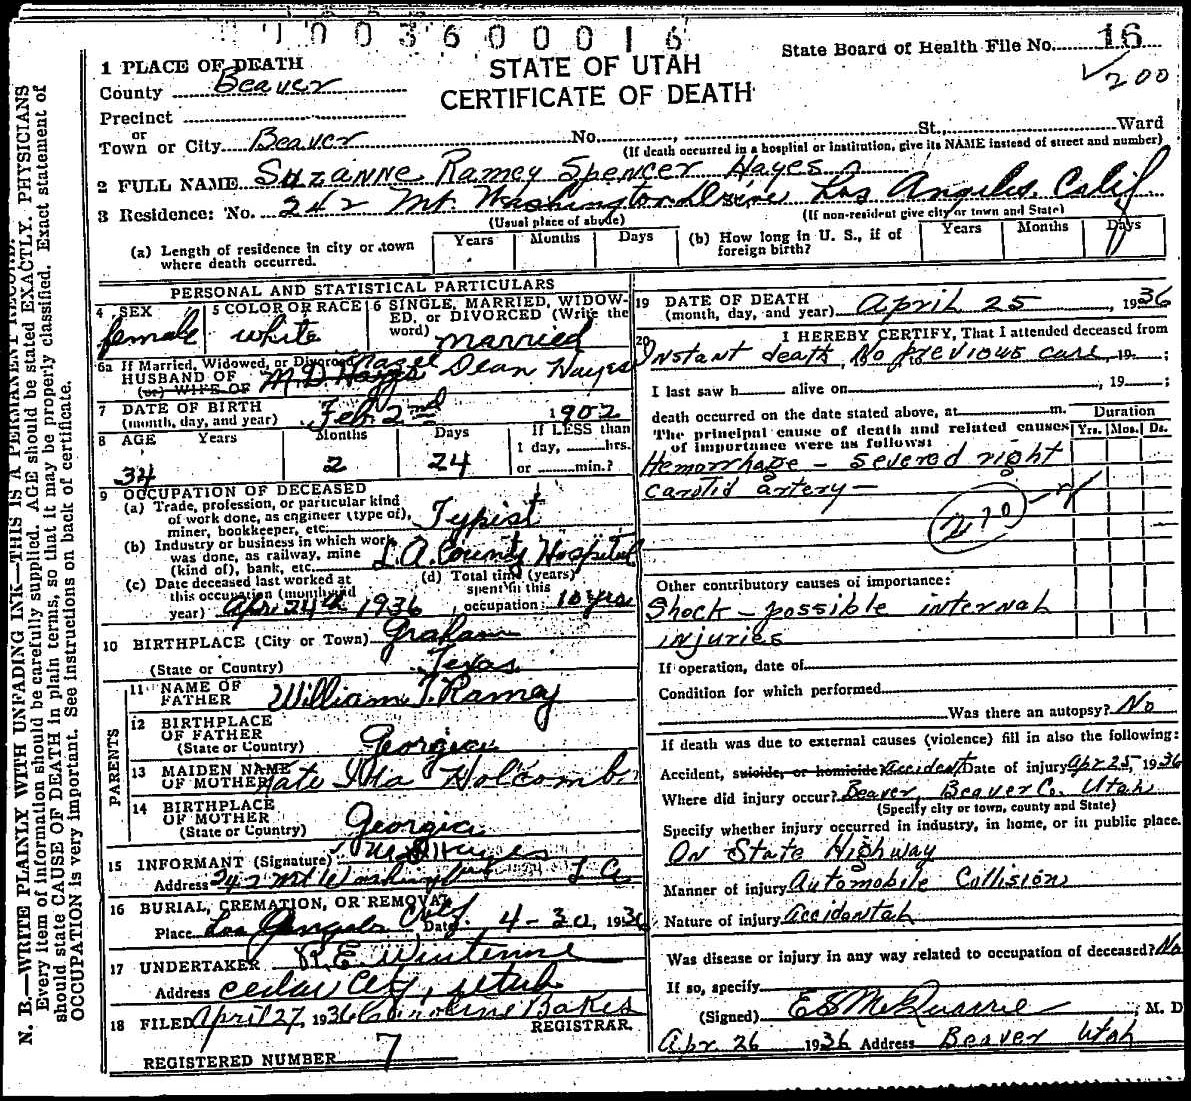 1003600016
State Board of Health File No. 16
200
STATE OF UTAH
CERTIFICATE OF DEATH
1 PLACE OF DEATH
County Beaver
Precinct
or
Town or City Beaver No. St., Ward
(If death occurred in a hospital or institution, give its NAME instead of street and number)
2 FULL NAME Suzanne Ramey Spencer Hayes
3 Residence: No. 242 Mt. Washington Drive Los Angeles, Calif
(Usual place of abode) (If non-resident give city or town and State)
(a) Length of residence in city or town where death occurred. Years Months Days
(b) How long in U. S., if of foreign birth? Years Months Days
PERSONAL AND STATISTICAL PARTICULARS
4 SEX female
5 COLOR OR RACE white
6 SINGLE, MARRIED, WIDOWED, or DIVORCED (Write the word) married
6a If Married, Widowed, or Divorced
HUSBAND OF
(or) WIFE OF Dean Hayes
7 DATE OF BIRTH
(month, day, and year) Feb 2nd 1902
8 AGE Years Months Days If LESS than
1 day, hrs.
34 2 24 or min.?
9 OCCUPATION OF DECEASED
(a) Trade, profession, or particular kind
of work done, as engineer (type of),
miner, bookkeeper, etc. Typist
(b) Industry or business in which work
was done, as railway, mine
(kind of), bank, etc. L.A. County Hospital
(c) Date deceased last worked at
this occupation (month and
year) Apr. 24th 1936
(d) Total time (years)
spent in this
occupation: 10 yrs
10 BIRTHPLACE (City or Town) Graham
(State or Country) Texas
PARENTS
11 NAME OF
FATHER William T. Ramey
12 BIRTHPLACE
OF FATHER
(State or Country) Georgia
13 MAIDEN NAME
OF MOTHER Kate Ida Holcomb
14 BIRTHPLACE
OF MOTHER
(State or Country) Georgia
15 INFORMANT (Signature) M D Hayes
Address 242 Mt Washington L A
16 BURIAL, CREMATION, OR REMOVAL
Place Los Angeles Calif. Date 4-30, 1936
17 UNDERTAKER R.E.
Address Cedar City, Utah
18 FILED April 27, 1936 Caroline Bakes
REGISTRAR.
REGISTERED NUMBER 7
19 DATE OF DEATH
(month, day, and year) April 25 1936
20 I HEREBY CERTIFY, That I attended deceased from
Instant death, No previous care, 19 ;
I last saw h alive on , 19 ;
death occurred on the date stated above, at m.
The principal cause of death and related causes
of importance were as follows:
Duration
Yrs. Mos. Ds.
Hemorrhage - severed right
carotid artery -
210
Other contributory causes of importance:
Shock - possible internal
injuries
If operation, date of
Condition for which performed
Was there an autopsy? No
If death was due to external causes (violence) fill in also the following:
Accident, suicide, or homicide Accident Date of injury Apr 25, 1936
Where did injury occur? Beaver, Beaver Co. Utah
(Specify city or town, county and State)
Specify whether injury occurred in industry, in home, or in public place.
On State Highway
Manner of injury Automobile Collision
Nature of injury Accidental
Was disease or injury in any way related to occupation of deceased? No
If so, specify
(Signed) E S McQuarrie, M. D
Apr. 26 1936 Address Beaver Utah
N. B.—WRITE PLAINLY WITH UNFADING INK—THIS IS A PERMANENT RECORD.
Every item of information should be carefully supplied. AGE should be stated EXACTLY. PHYSICIANS
should state CAUSE OF DEATH in plain terms, so that it may be properly classified. Exact statement of
OCCUPATION is very important. See instructions on back of certificate.